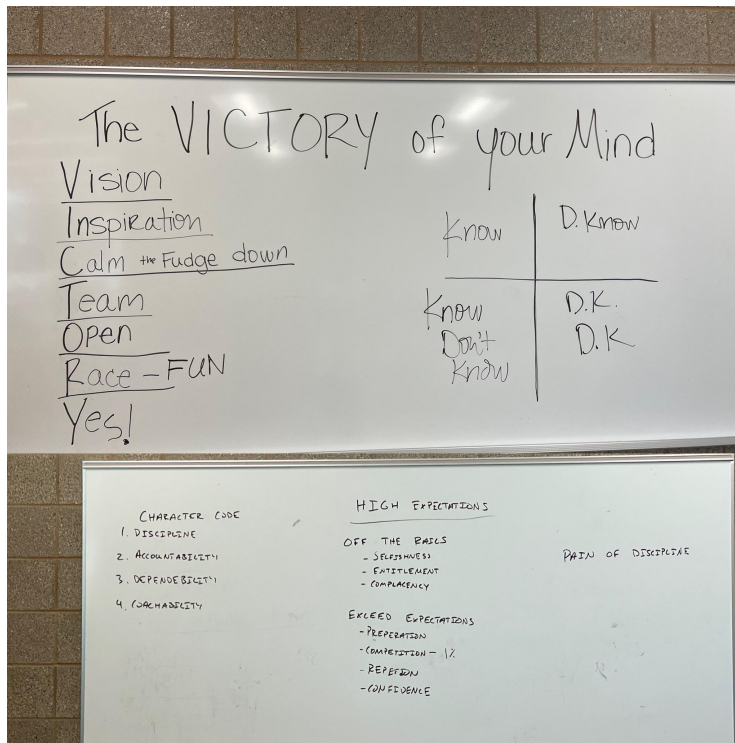 The VICTORY of your Mind
Vision
Inspiration
Calm the Fudge down
Team
Open
Race - FUN
Yes!
Know
D. Know
Know
Don't
Know
D.K.
D.K
CHARACTER CODE
1. DISCIPLINE
2. ACCOUNTABILITY
3. DEPENDEBILITY
4. COACHABILITY
HIGH EXPECTATIONS
OFF THE RAILS
- SELFISHNESS
- ENTITLEMENT
- COMPLACENCY
EXCEED EXPECTATIONS
- PREPERATION
- COMPETITION - 1%
- REPETION
- CONFIDENCE
PAIN OF DISCIPLINE